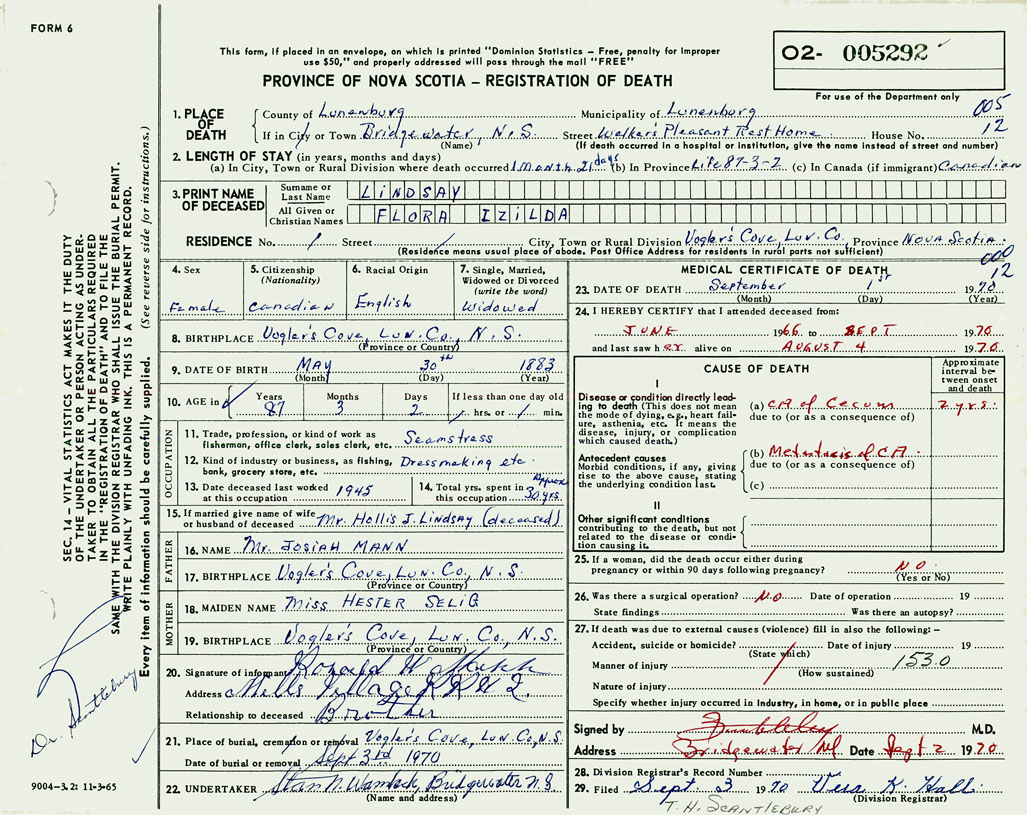 FORM 6
This form, if placed in an envelope, on which is printed "Dominion Statistics – Free, penalty for improper
use $50," and properly addressed will pass through the mail "FREE"
PROVINCE OF NOVA SCOTIA – REGISTRATION OF DEATH
O2- 005292
For use of the Department only
005
12
1. PLACE OF DEATH
County of Lunenburg Municipality of Lunenburg
If in City or Town Bridgewater, N.S. Street Walker's Pleasant Rest Home House No.
(Name) (If death occurred in a hospital or institution, give the name instead of street and number)
2. LENGTH OF STAY (in years, months and days)
(a) In City, Town or Rural Division where death occurred 1 Month 21 days (b) In Province Life 87-3-2 (c) In Canada (if immigrant) Canadian
3. PRINT NAME OF DECEASED
Surname or Last Name LINDSAY
All Given or Christian Names FLORA IZILDA
RESIDENCE No. / Street / City, Town or Rural Division Vogler's Cove, Lun. Co. Province Nova Scotia.
(Residence means usual place of abode. Post Office Address for residents in rural parts not sufficient)
000
12
4. Sex
Female
5. Citizenship
(Nationality)
Canadian
6. Racial Origin
English
7. Single, Married,
Widowed or Divorced
(write the word)
Widowed
8. BIRTHPLACE Vogler's Cove, Lun. Co., N.S.
(Province or Country)
9. DATE OF BIRTH MAY 30th 1883
(Month) (Day) (Year)
10. AGE in Years Months Days If less than one day old
87 3 2 / hrs. or / min.
OCCUPATION
11. Trade, profession, or kind of work as
fisherman, office clerk, sales clerk, etc. Seamstress
12. Kind of industry or business, as fishing,
bank, grocery store, etc. Dressmaking etc.
13. Date deceased last worked
at this occupation 1945
14. Total yrs. spent in
this occupation Approx 30 yrs.
15. If married give name of wife
or husband of deceased Mr. Hollis J. Lindsay (deceased)
FATHER
16. NAME Mr. JOSIAH MANN
17. BIRTHPLACE Vogler's Cove, Lun. Co., N.S.
(Province or Country)
MOTHER
18. MAIDEN NAME Miss HESTER SELIG
19. BIRTHPLACE Vogler's Cove, Lun. Co., N.S.
(Province or Country)
20. Signature of informant Ronald W.
Address Mills Village RR# 2.
Relationship to deceased Brother
21. Place of burial, cremation or removal Vogler's Cove, Lun. Co., N.S.
Date of burial or removal Sept 3rd 1970
22. UNDERTAKER Bridgewater N.S.
(Name and address)
MEDICAL CERTIFICATE OF DEATH
23. DATE OF DEATH September 1st 1970
(Month) (Day) (Year)
24. I HEREBY CERTIFY that I attended deceased from:
JUNE 1966 to SEPT 1970
and last saw her alive on AUGUST 4 1970
CAUSE OF DEATH
Approximate
interval be-
tween onset
and death
I
Disease or condition directly lead-
ing to death (This does not mean
the mode of dying, e.g., heart failure,
asthenia, etc. It means the
disease, injury, or complication
which caused death.)
(a) CA of Cecum 2 yrs.
due to (or as a consequence of)
Antecedent causes
Morbid conditions, if any, giving
rise to the above cause, stating
the underlying condition last.
(b) Metastasis of CA
due to (or as a consequence of)
(c)
II
Other significant conditions
contributing to the death, but not
related to the disease or condi-
tion causing it.
25. If a woman, did the death occur either during
pregnancy or within 90 days following pregnancy? NO
(Yes or No)
26. Was there a surgical operation? NO Date of operation 19
State findings Was there an autopsy?
27. If death was due to external causes (violence) fill in also the following: –
Accident, suicide or homicide? Date of injury 19
(State which)
Manner of injury 153.0
(How sustained)
Nature of injury
Specify whether injury occurred in industry, in home, or in public place
Signed by M.D.
Address Bridgewater Date Sept 2 1970
28. Division Registrar's Record Number
29. Filed Sept. 3 1970 Vera K. Hall
(Division Registrar)
T. H. SCANTLEBURY
SEC. 14 – VITAL STATISTICS ACT MAKES IT THE DUTY
OF THE UNDERTAKER OR PERSON ACTING AS UNDER-
TAKER TO OBTAIN ALL THE PARTICULARS REQUIRED
IN THE "REGISTRATION OF DEATH" AND TO FILE THE
SAME WITH THE DIVISION REGISTRAR WHO SHALL ISSUE THE BURIAL PERMIT.
WRITE PLAINLY WITH UNFADING INK. THIS IS A PERMANENT RECORD.
Every item of information should be carefully supplied. (See reverse side for instructions.)
Dr. Scantlebury
9004-3.2: 11-3-65